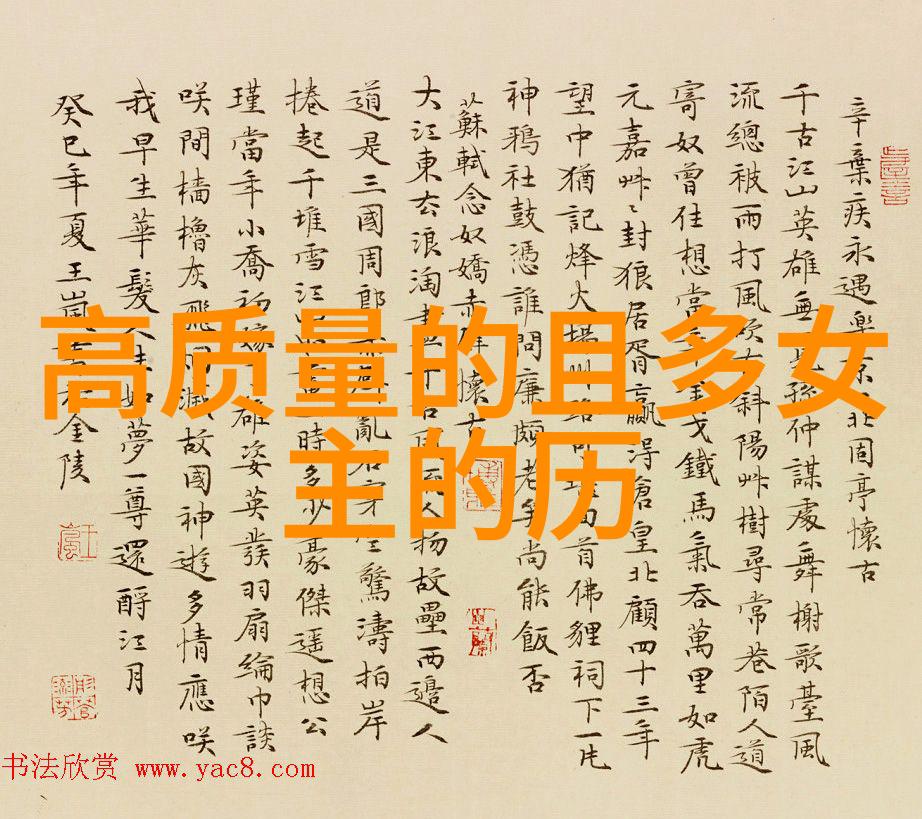 辛棄疾永遇樂京北固亭懷古
千古江山英雄無孫仲謀處舞榭歌臺風
流總被雨打風吹斜陽艸樹尋常巷陌人道
寄奴曾住想當戈鐵馬氣吞萬里如虎
元嘉艸〻封狼居胥贏得倉皇北顧四十三年
望中猶記烽火揚州路首佛貍祠下一片
神鴉社鼓憑誰問廉頗老矣尚能飯否
蘇軾念奴嬌赤壁懷古
大江東去浪淘盡千古人物故壘西邊人
道是三國周郎亂石穿空驚濤拍岸
捲起千堆雪江山時多少豪傑遥想公
瑾當年小喬初嫁雄姿英發羽扇綸巾談
咲間檣櫓灰飛煙滅故國神遊多情應咲
我早生華髮人生如夢一尊還酹江月
癸巳年夏王金陵
高质量的且多女
主的历
书法欣赏 www.yac8.com